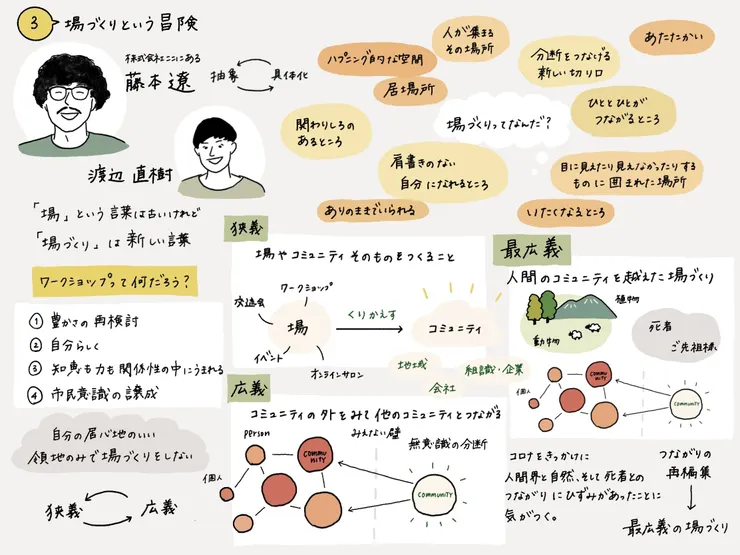 3 場づくりという冒険
株式会社ここにある
藤本遼
抽象
具体化
渡辺 直樹
「場」という言葉は古いけれど
「場づくり」は新しい言葉
ワークショップって何だろう?
① 豊かさの再検討
② 自分らしく
③ 知恵も力も関係性の中にうまれる
④ 市民意識の譲成
自分の居心地のいい
領地のみで場づくりをしない
狭義
広義
人が集まる
その場所
ハプニング的な空間
居場所
分断をつなげる
新しい切り口
あたたかい
関わりしろの
あるところ
場づくりってなんだ?
ひととひとが
つながるところ
肩書きのない
自分になれるところ
目に見えたり見えなかったりする
ものに囲まれた場所
ありのままでいられる
いたくなるところ
狭義
場やコミュニティそのものをつくること
ワークショップ
交流会
場
イベント
オンラインサロン
くりかえす
コミュニティ
地域
会社
組識・企業
広義
コミュニティの外をみて他のコミュニティとつながる
person
みえない壁
無意識の分断
個人
COMMU
NITY
COMMUNITY
最広義
人間のコミュニティを越えた場づくり
植物
動物
死者
ご先祖様
個人
COMMU
NITY
COMMUNITY
コロナをきっかけに
人間界と自然、そして死者との
つながりにひずみがあったことに
気がつく。
つながりの
再編集
最広義の場づくり